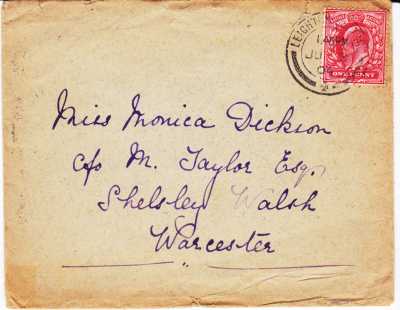 LEIGHT
JU
ONE PENNY
Miss Monica Dickson
c/o M. Taylor Esq.
Shelsley Walsh
Worcester